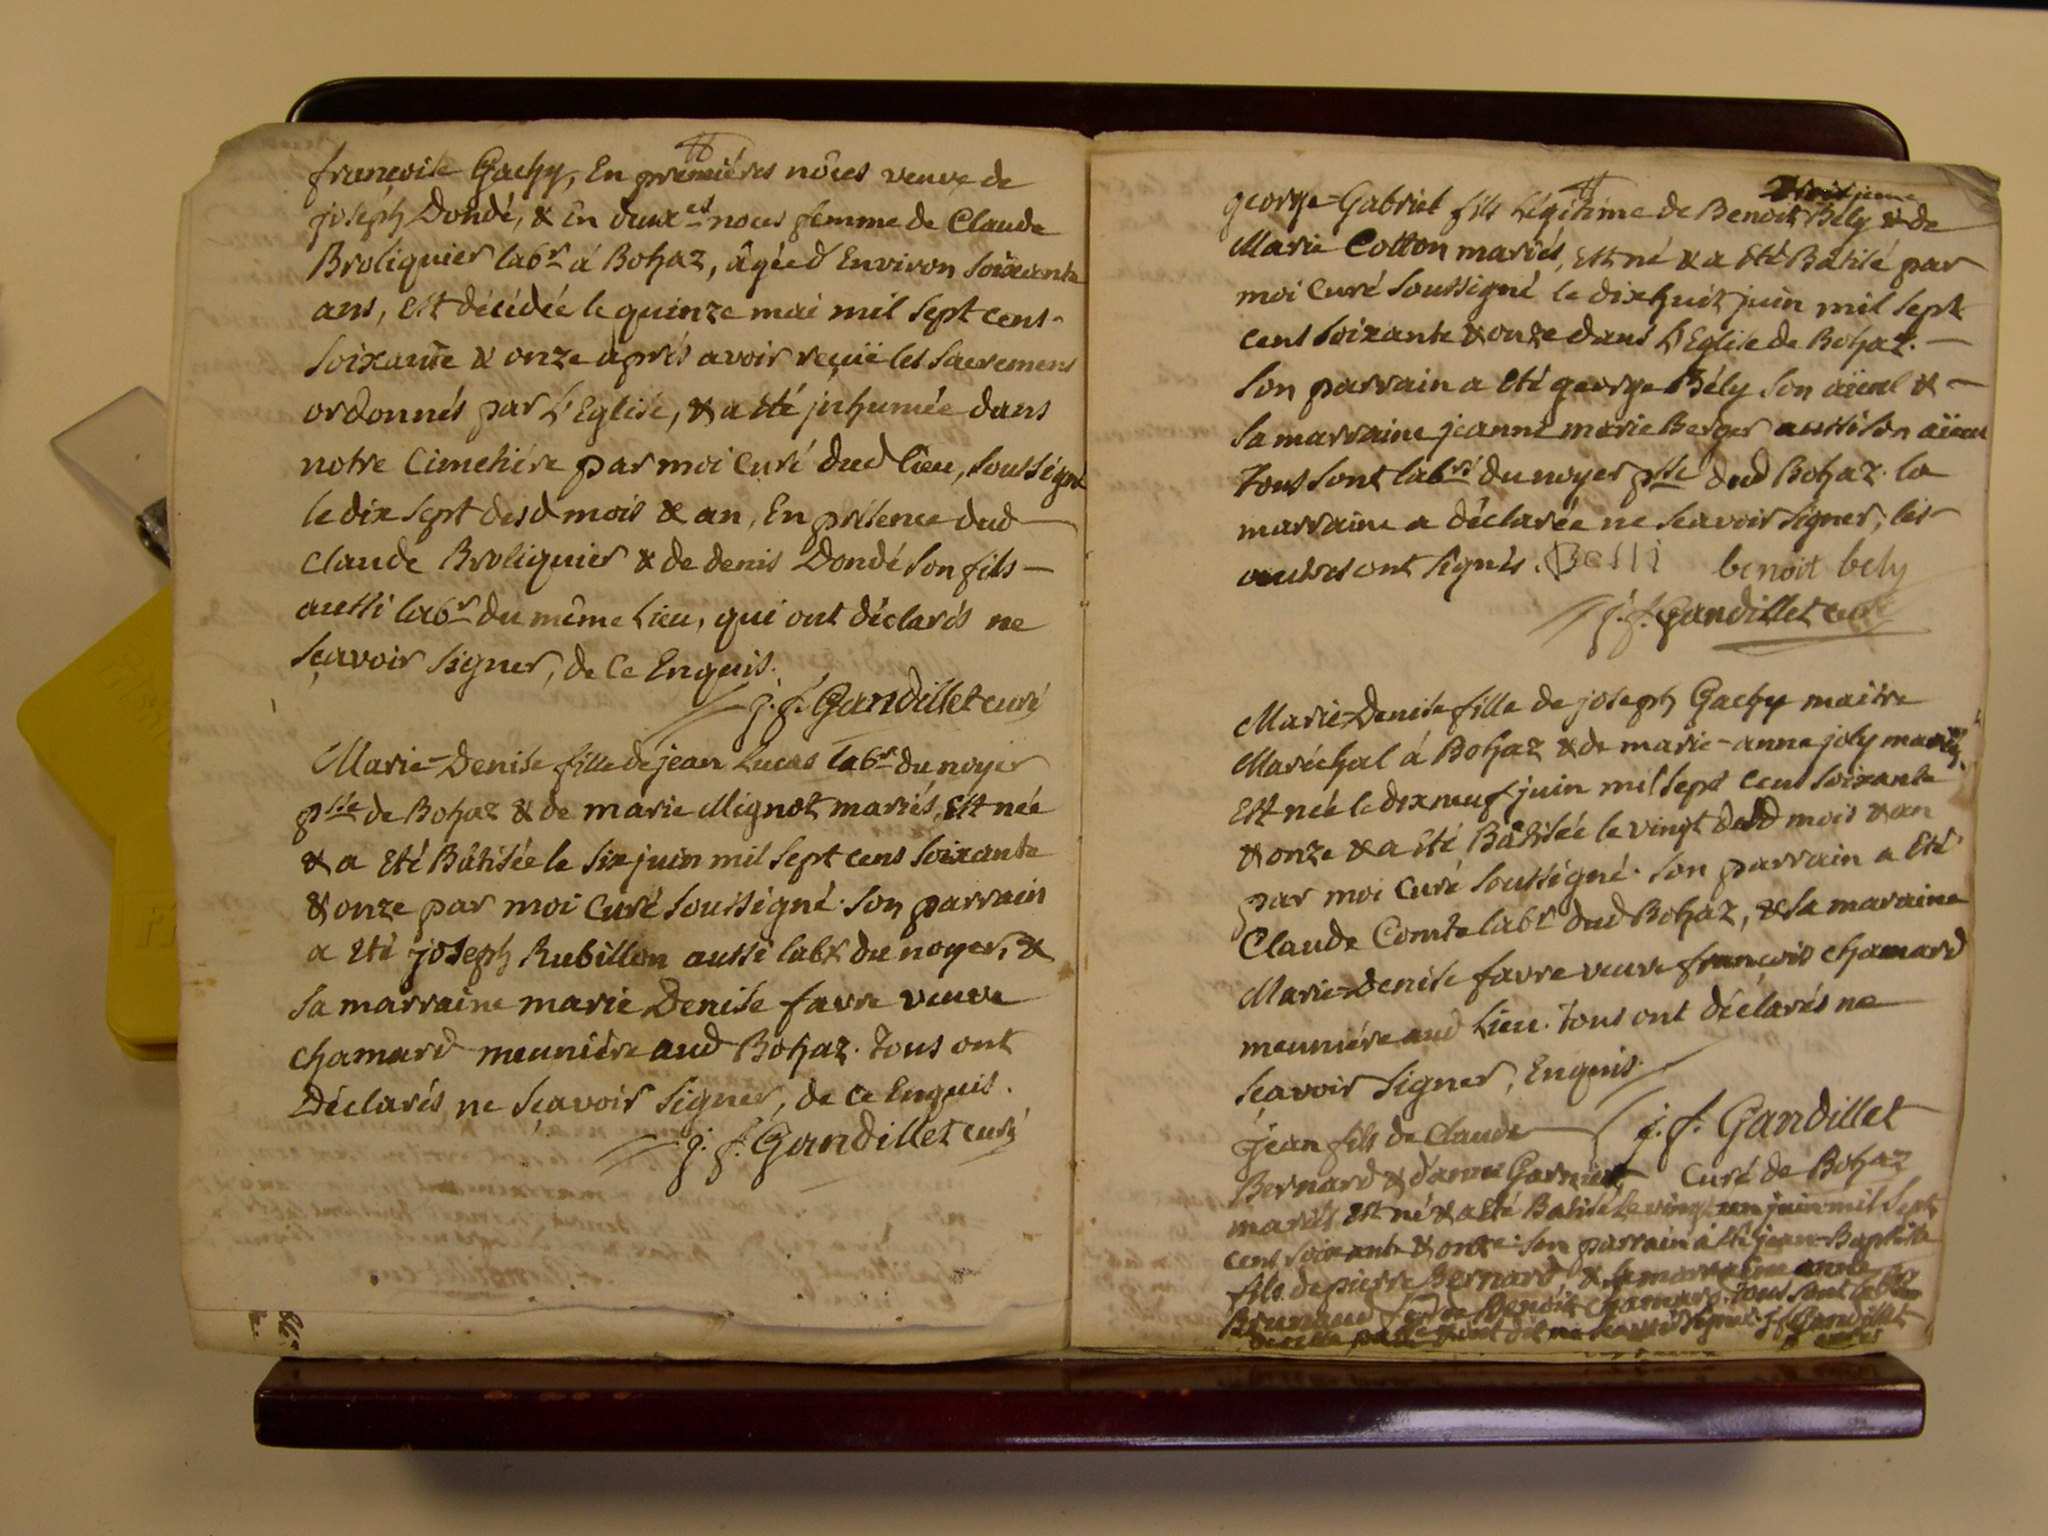 françoise Gachy, En premiéres nôces veuve de
joseph Dondé, & En deuxes noces femme de Claude
Broliquier labr á Bohaz, âgée d'Environ soixante
ans, Est décédée le quinze mai mil sept cens
soixante & onze aprés avoir reçuë les sacremens
ordonnés par L'Eglise, & a été jnhumée dans
notre Cimetiére par moi Curé dud lieu, soussigné
le dix sept desd mois & an, En présence dud
Claude Broliquier & de denis Dondé son fils
aussi labr du même Lieu, qui ont déclarés ne
sçavoir signer, de Ce Enquis.
j. f. Gandillet curé
Marie-Denise fille de jean Lucas labr du noyer
psse de Bohaz & de marie Mignot mariés, Est née
& a Eté Bâtisée le six juin mil sept cens soixante
& onze par moi Curé soussigné. son parrain
a Eté joseph Rubillon aussi labr du noyer, &
sa marraine marie Denise favre veuve
chamard meuniére aud Bohaz. Tous ont
Déclarés ne sçavoir signer, de Ce Enquis.
j. f. Gandillet curé
Troisjeme
george-Gabriel fils Légitime de Benoit Bély & de
Marie Cotton mariés, Est né & a Eté Bâtisé par
moi Curé soussigné le dixhuit juin mil sept
cent soixante & onze dans L'Eglise de Bohaz.
son parrain a Eté george Bély son aïeul &
sa marraine jeanne marie Berger aussi son aïeu
Tous sont labrs du noyer psse dud Bohaz. la
marraine a déclarée ne sçavoir signer, les
autres ont signés. Belli benoit bely
j. f. Gandillet curé
Marie-Denise fille de joseph Gachy maitre
Maréchal á Bohaz & de marie-anne joly mariés,
Est née le dix neuf juin mil sept cens soixante
& onze & a Eté Bâtisée le vingt desd mois & an
par moi Curé soussigné. son parrain a Eté
Claude Comte labr dud Bohaz, & sa maraine
Marie-Denise favre veuve françois chamard
meuniére aud Lieu. Tous ont déclarés ne
sçavoir signer, Enquis.
j. f. Gandillet
Curé de Bohaz
jean fils de Claude
Bernard & d'anne Garnier
mariés Est né & a Eté Batisé Le vingt un juin mil sept
cens soixante & onze. son parrain a Eté jean-Baptiste
fils de pierre Bernard, & sa marraine anne
Brunaud fe de Benoit chamard. Tous sont labrs
de cette psse & ont dit ne sçavoir signer. j. f. Gandillet
curé